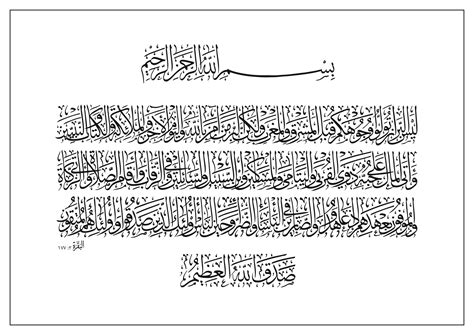 بِسْمِ اللَّهِ الرَّحْمَنِ الرَّحِيمِ
لَيْسَ الْبِرَّ أَنْ تُوَلُّوا وُجُوهَكُمْ قِبَلَ الْمَشْرِقِ وَالْمَغْرِبِ وَلَكِنَّ الْبِرَّ مَنْ آمَنَ بِاللَّهِ وَالْيَوْمِ الْآخِرِ وَالْمَلَائِكَةِ وَالْكِتَابِ وَالنَّبِيِّينَ
وَآتَى الْمَالَ عَلَى حُبِّهِ ذَوِي الْقُرْبَى وَالْيَتَامَى وَالْمَسَاكِينَ وَابْنَ السَّبِيلِ وَالسَّائِلِينَ وَفِي الرِّقَابِ وَأَقَامَ الصَّلَاةَ وَآتَى الزَّكَاةَ
وَالْمُوفُونَ بِعَهْدِهِمْ إِذَا عَاهَدُوا وَالصَّابِرِينَ فِي الْبَأْسَاءِ وَالضَّرَّاءِ وَحِينَ الْبَأْسِ أُولَئِكَ الَّذِينَ صَدَقُوا وَأُولَئِكَ هُمُ الْمُتَّقُونَ
البقرة ١٧٧
صَدَقَ اللَّهُ الْعَظِيمُ